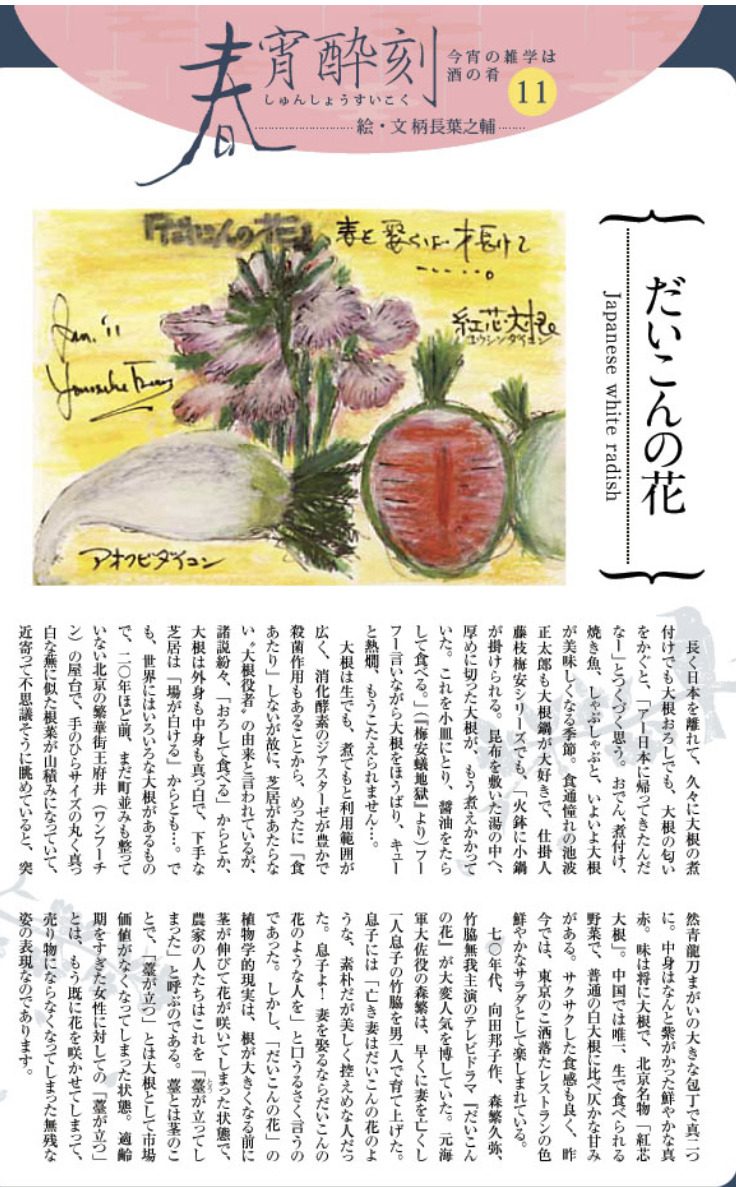 春宵酔刻
しゅんしょうすいこく
今宵の雑学は
酒の肴
11
絵・文 柄長葉之輔
だいこんの花
Japanese white radish
『だいこんの花』
妻を娶らば才長けて
……。
Jan. '11
紅芯大根
コウシンダイコン
アオクビダイコン
長く日本を離れて、久々に大根の煮
付けでも大根おろしでも、大根の匂い
をかぐと、「アー日本に帰ってきたんだ
なー」とつくづく思う。おでん、煮付け、
焼き魚、しゃぶしゃぶと、いよいよ大根
が美味しくなる季節。食通憧れの池波
正太郎も大根鍋が大好きで、仕掛人
藤枝梅安シリーズでも、「火鉢に小鍋
が掛けられる。昆布を敷いた湯の中へ、
厚めに切った大根が、もう煮えかかって
いた。これを小皿にとり、醤油をたら
して食べる。」(『梅安蟻地獄』より)フー
フー言いながら大根をほうばり、キュー
と熱燗、もうこたえられません…。
大根は生でも、煮てもと利用範囲が
広く、消化酵素のジアスターゼが豊かで
殺菌作用もあることから、めったに『食
あたり』しないが故に、芝居があたらな
い〝大根役者〟の由来と言われているが、
諸説紛々、「おろして食べる」からとか、
大根は外身も中身も真っ白で、下手な
芝居は「場が白ける」からとも…。で
も、世界にはいろいろな大根があるもの
で、二〇年ほど前、まだ町並みも整って
いない北京の繁華街王府井（ワンフーチ
ン）の屋台で、手のひらサイズの丸く真っ
白な蕪に似た根菜が山積みになっていて、
近寄って不思議そうに眺めていると、突
然青龍刀まがいの大きな包丁で真二つ
に。中身はなんと紫がかった鮮やかな真
赤。味は将に大根で、北京名物「紅芯
大根」。中国では唯一、生で食べられる
野菜で、普通の白大根に比べ仄かな甘み
がある。サクサクした食感も良く、昨
今では、東京のこ洒落たレストランの色
鮮やかなサラダとして楽しまれている。
七〇年代、向田邦子作、森繁久弥、
竹脇無我主演のテレビドラマ『だいこん
の花』が大変人気を博していた。元海
軍大佐役の森繁は、早くに妻を亡くし
一人息子の竹脇を男一人で育て上げた。
息子には「亡き妻はだいこんの花のよ
うな、素朴だが美しく控えめな人だっ
た。息子よ！妻を娶るならだいこんの
花のような人を」と口うるさく言うの
であった。しかし、「だいこんの花」の
植物学的現実は、根が大きくなる前に
茎が伸びて花が咲いてしまった状態で、
農家の人たちはこれを「薹が立ってし
まった」と呼ぶのである。薹とは茎のこ
とで、「薹が立つ」とは大根として市場
価値がなくなってしまった状態。適齢
期をすぎた女性に対しての「薹が立つ」
とは、もう既に花を咲かせてしまって、
売り物にならなくなってしまった無残な
姿の表現なのであります。